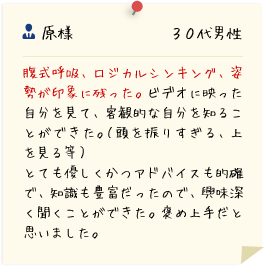 原様 30代男性
腹式呼吸、ロジカルシンキング、姿
勢が印象に残った。ビデオに映った
自分を見て、客観的な自分を知るこ
とができた。(頭を振りすぎる、上
を見る等)
とても優しくかつアドバイスも的確
で、知識も豊富だったので、興味深
く聞くことができた。褒め上手だと
思いました。